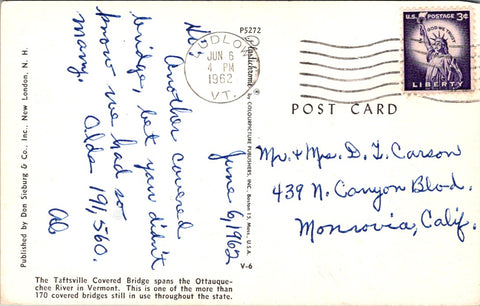 Published by Dan Sieburg & Co., Inc., New London, N. H.
June 6, 1962
Hi;
Another covered
bridge, bet you didn't
know we had so
many.
Olds 191,560.
Ab
The Taftsville Covered Bridge spans the Ottauque-
chee River in Vermont. This is one of the more than
170 covered bridges still in use throughout the state.
P5272
Plastichrome ® by COLOURPICTURE PUBLISHERS, INC., Boston 15, Mass., U.S.A.
V-6
LUDLOW
JUN 6
4 PM
1962
VT.
U.S. POSTAGE 3¢
IN GOD WE TRUST
LIBERTY
POST CARD
Mr. & Mrs. D. L. Carson
439 N. Canyon Blvd.
Monrovia, Calif.